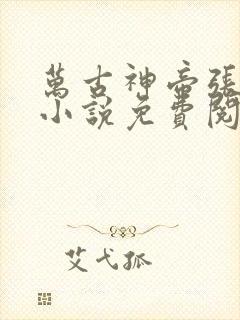 萬古神帝張
小說免費閱
艾弋孤